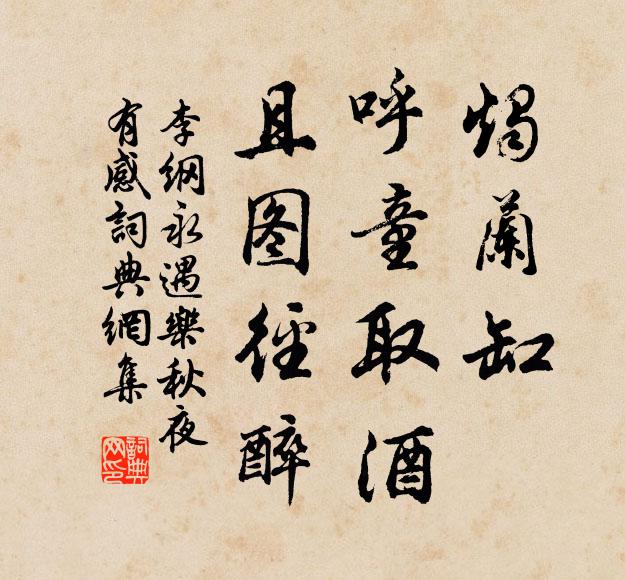 燭蘭缸
呼童取酒
且图徑醉
李綱永遇樂秋夜
有感詞典網集
詞典
网印